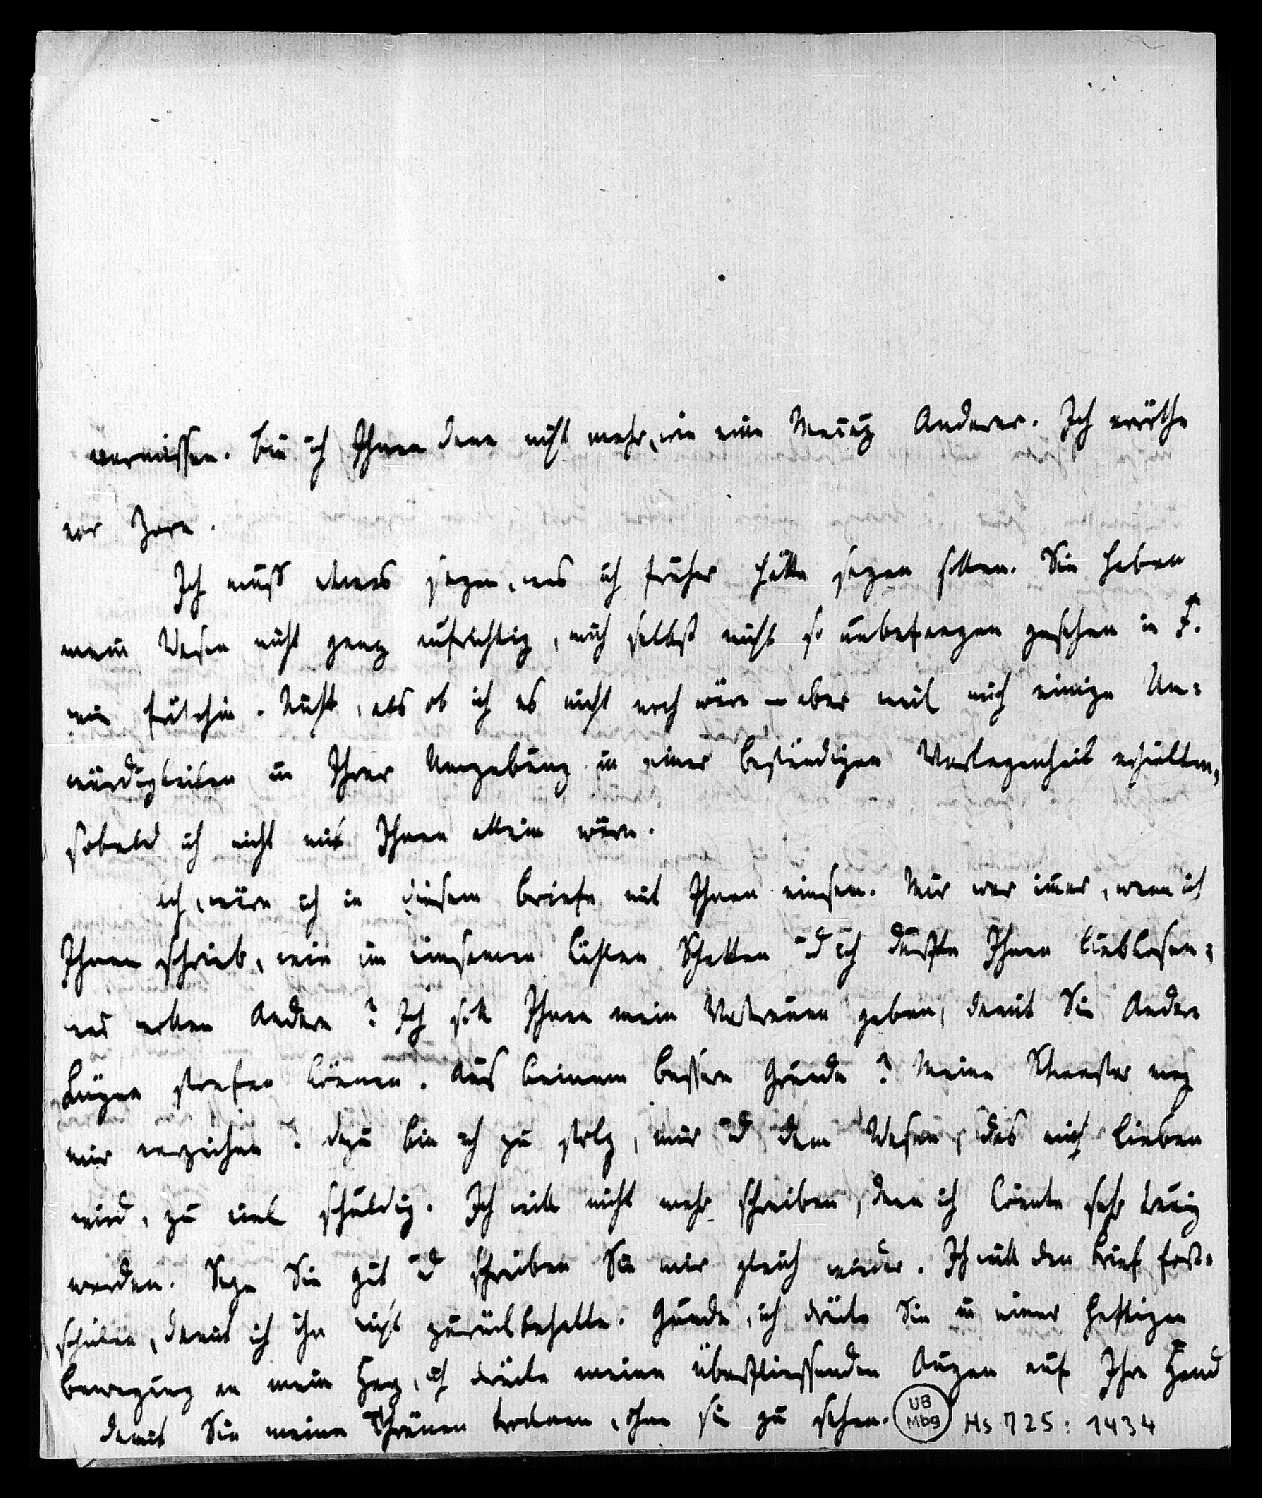 vermissen. Bin ich Ihnen denn nicht mehr, wie eine Menge Anderer. Ich erröthe
vor Zorn.
Ich muß etwas sagen, was ich früher hätte sagen sollen. Sie haben
mein Wesen nicht ganz aufrichtig, mich selbst nicht so unbefangen gesehen in F.
wie früherhin. Nicht, als ob ich es nicht noch wäre – aber weil mich einige Un=
würdigkeiten in Ihrer Umgebung in einer beständigen Verlegenheit erhielten,
sobald ich nicht mit Ihnen allein wäre.
Ach, wäre ich in diesem Briefe mit Ihnen einsam. Mir war immer, wenn ich
Ihnen schrieb, wie im einsamen Schatten ūd ich dürfte Ihnen liebkosen:
was wollen Andere? Ich soll Ihnen mein Vertrauen geben, damit Sie Andere
Lügen strafen können. Aus keinem bessern Grunde? Meine Schwester mag
mir verzeihen. dazu bin ich zu stolz, mir ūd dem Wesen, das mich lieben
wird, zu viel schuldig. Ich will nicht mehr schreiben, denn ich könnte sehr traurig
werden. Seyn Sie gut ūd schreiben Sie mir gleich wieder. Ich will den Brief fort=
schicken, damit ich ihn nicht zurückbehalte. Gunda, ich drücke Sie in einer heftigen
Bewegung an mein Herz, ich drücke meine überfliessenden Augen auf Ihre Hand
damit Sie meine Thränen trocknen, ohne sie zu sehen.
UB
Mbg
Hs 725: 1434